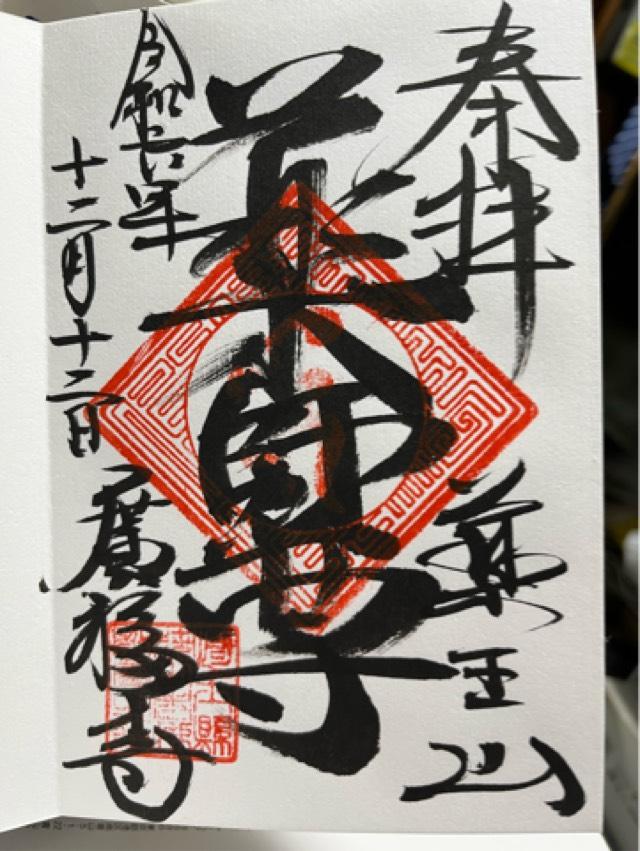 奉拝
薬王山
薬師尊
令和六年
十二月十二日
廣福寺